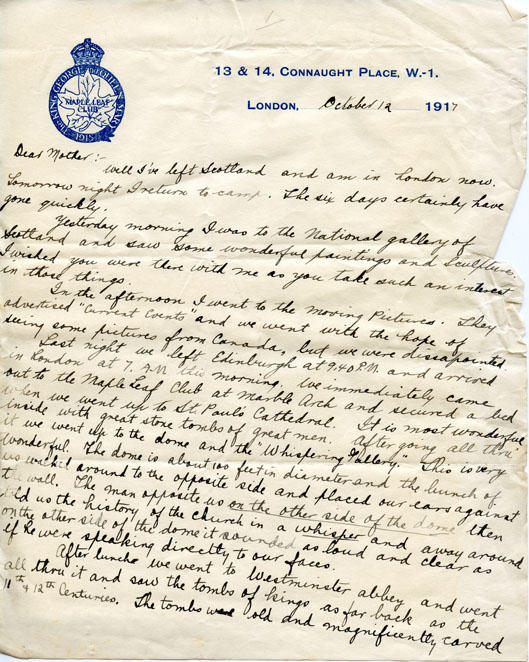 The King George and Queen Mary
Maple Leaf Club
1915
13 & 14, Connaught Place, W.-1.
London, October 12 1917
Dear Mother:-
Well I've left Scotland and am in London now.
Tomorrow night I return to camp. The six days certainly have
gone quickly.
Yesterday morning I was to the National gallery of
Scotland and saw some wonderful paintings and sculpture
I wished you were there with me as you take such an interest
in those things.
In the afternoon I went to the Moving Pictures. They
advertised "Current Events" and we went with the hope of
seeing some pictures from Canada, but we were dissapointed.
Last night we left Edinburgh at 9.40 P.M and arrived
in London at 7. A.M this morning, we immediately came
out to the Maple Leaf Club at Marble Arch and secured a bed
when we went up to St. Paul's Cathedral. It is most wonderful
inside with great stone tombs of great men. After going all thru
it we went up to the dome and the "Whispering Gallery." This is very
wonderful. The dome is about 100 feet in diameter and the bunch of
us walked around to the opposite side and placed our ears against
the wall. The man opposite us on the other side of the dome then
told us the history of the church in a whisper and away around
on the other side of the dome it sounded as loud and clear as
if he were speaking directly to our faces.
After lunch we went to Westminster abbey and went
all thru it and saw the tombs of kings as far back as the
11th & 12th Centuries. The tombs were old and magnificently carved